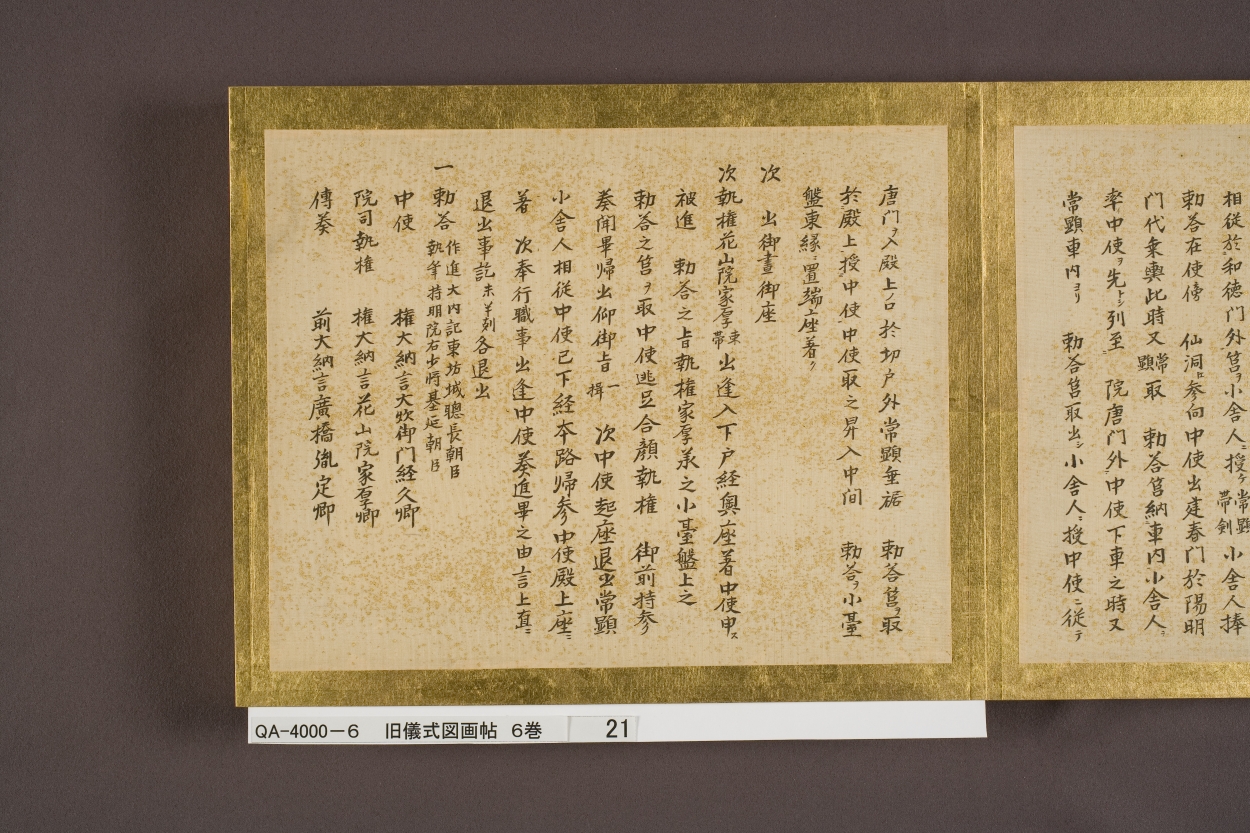 相従於和徳門外筥ヲ小舎人ニ授ケ常顕帯剣小舎人捧
勅答在使傍　仙洞ニ参向中使出建春門於陽明
門代乗輿此時又常顕取　勅答筥納車内小舎人ヲ
率中使ヲ先トシ列至　院唐門外中使下車之時又
常顕車内ヨリ　勅答筥取出シ小舎人ニ授中使ニ従テ
唐門ヲ入殿上ノ口於切戸外常顕垂裾　勅答筥ヲ取
於殿上授中使中使取之昇入中間　勅答ヲ小臺
盤東縁ニ置端座着ク
次　出御晝御座
次執権花山院家厚束帯出逢入下戸経奥座着中使申ス
被進　勅答之旨執権家厚承之小臺盤上之
勅答之筥ヲ取中使逃足合顔執権　御前持参
奏聞畢帰出仰御旨一揖　次中使起座退出常顕
小舎人相従中使已下経本路帰参中使殿上座ニ
著　次奉行職事出逢中使奏進畢之由言上直ニ
退出事訖未半刻各退出
一勅答　作進大内記東坊城聰長朝臣
執筆持明院右少将基延朝臣
中使　権大納言大炊御門経久卿
院司執権　権大納言花山院家厚卿
傳奏　前大納言廣橋胤定卿
QA-4000-6　旧儀式図画帖　6巻　21